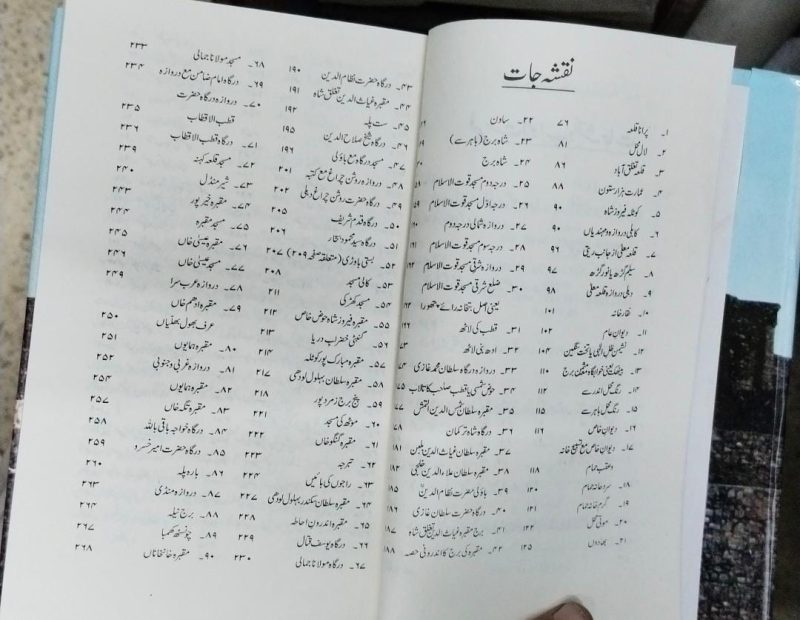 نقشہ جات
۱۔ پرانا قلعہ ۷۶
۲۔ لال محل ۸۱
۳۔ قلعہ تغلق آباد ۸۶
۴۔ عمارت ہزار ستون ۸۸
۵۔ کوٹلہ فیروز شاہ ۹۰
۶۔ کابلی دروازہ و مہندیاں ۹۰
۷۔ قلعہ معلی از جانب ریتی ۹۶
۸۔ سلیم گڑھ یا نور گڑھ ۹۷
۹۔ دہلی دروازہ قلعہ معلی ۹۸
۱۰۔ نقار خانہ ۱۰۱
۱۱۔ دیوان عام ۱۰۲
۱۲۔ نشیمن ظل الٰہی یا تخت سنگین ۱۰۴
۱۳۔ بیٹھک یعنی خوابگاہ و مثمن برج ۱۱۰
۱۴۔ رنگ محل اندر سے ۱۱۲
۱۵۔ رنگ محل باہر سے ۱۱۵
۱۶۔ دیوان خاص ۱۱۶
۱۷۔ دیوان خاص مع تسبیح خانہ
و عقب حمام ۱۱۸
۱۸۔ سرد خانہ حمام ۱۲۰
۱۹۔ گرم خانہ حمام ۱۲۱
۲۰۔ موتی محل ۱۲۲
۲۱۔ بھادوں ۱۲۵
۲۲۔ ساون
۲۳۔ شاہ برج (باہر سے)
۲۴۔ شاہ برج
۲۵۔ درجہ دوم مسجد قوت الاسلام
۲۶۔ درجہ اول مسجد قوت الاسلام
۲۷۔ دروازہ شمالی درجہ دوم
۲۸۔ درجہ سوم مسجد قوت الاسلام
۲۹۔ دروازہ شرقی مسجد قوت الاسلام
۳۰۔ ضلع شرقی مسجد قوت الاسلام
یعنی اصل بتخانہ رائے پتھورا
۳۱۔ قطب کی لاٹھ
۳۲۔ ادھ بنی لاٹھ
۳۳۔ دروازہ درگاہ سلطان محمد غازی
۳۴۔ حوض شمسی یا قطب صاحب کا تالاب
۳۵۔ مقبرہ سلطان شمس الدین التمش
۳۶۔ درگاہ شاہ ترکمان
۳۷۔ مقبرہ سلطان غیاث الدین بلبن ۱۸۱
۳۸۔ مقبرہ سلطان علاء الدین خلجی ۱۸۲
۳۹۔ باؤلی حضرت نظام الدین ۱۸۵
۴۰۔ درگاہ حضرت سلطان غازی ۱۸۶
۴۱۔ برج مقبرہ غیاث الدین تغلق شاہ ۱۸۷
۴۲۔ مقبرہ کی برج کا اندرونی حصہ ۱۸۸
۴۳۔ درگاہ حضرت نظام الدین ۱۹۰
۴۴۔ مقبرہ غیاث الدین تغلق شاہ ۱۹۱
۴۵۔ ست پلہ ۱۹۲
۴۶۔ درگاہ شیخ صلاح الدین ۱۹۵
۴۷۔ مسجد درگاہ مع باؤلی ۱۹۶
۴۸۔ دروازہ روشن چراغ مع کتبہ ۲۰۱
۴۹۔ درگاہ حضرت روشن چراغ دہلی ۲۰۲
۵۰۔ درگاہ قدم شریف ۲۰۵
۵۱۔ درگاہ سید محمود بحار ۲۰۶
۵۲۔ بستی باؤڑی (متعلقہ صفحہ ۲۰۹) ۲۰۷
۵۳۔ کالی مسجد ۲۰۸
۵۴۔ مسجد کھڑکی ۲۱۱
۵۵۔ مقبرہ فیروز شاہ حوض خاص ۲۱۲
۵۶۔ گمٹی خضراب دریا ۲۱۳
۵۷۔ مقبرہ مبارک پور کوٹلہ ۲۱۴
۵۸۔ مقبرہ سلطان بہلول لودھی ۲۱۷
۵۹۔ پنج برج زمرد پور ۲۱۸
۶۰۔ موٹھ کی مسجد ۲۲۱
۶۱۔ مقبرہ لنگو خاں ۲۲۲
۶۲۔ تبرجہ ۲۲۳
۶۳۔ راجوں کی بائیں ۲۲۴
۶۴۔ مقبرہ سلطان سکندر بہلول لودھی ۲۲۷
۶۵۔ مقبرہ اندرون احاطہ ۲۲۸
۶۶۔ درگاہ یوسف قتال ۲۲۹
۶۷۔ درگاہ مولانا جمالی ۲۳۰
۶۸۔ مسجد مولانا جمالی ۲۳۳
۶۹۔ درگاہ امام ضامن مع دروازہ ۲۳۴
۷۰۔ دروازہ درگاہ حضرت
قطب الاقطاب ۲۳۵
۷۱۔ درگاہ قطب الاقطاب ۲۳۶
۷۲۔ مسجد قلعہ کہنہ ۲۳۹
۷۳۔ شیر منڈل ۲۴۰
۷۴۔ مقبرہ خیر پور ۲۴۳
۷۵۔ مسجد مقبرہ ۲۴۴
۷۶۔ مقبرہ عیسیٰ خاں ۲۴۵
۷۷۔ مسجد عیسیٰ خاں ۲۴۶
۷۸۔ دروازہ عرب سرا ۲۴۹
۷۹۔ مقبرہ ادھم خاں
عرف بھول بھلیاں ۲۵۰
۸۰۔ مقبرہ ہمایوں ۲۵۱
۸۱۔ دروازہ غربی و جنوبی ۲۵۲
۸۲۔ مقبرہ ہمایوں ۲۵۴
۸۳۔ مقبرہ تکہ خاں ۲۵۷
۸۴۔ درگاہ خواجہ باقی باللہ ۲۵۸
۸۵۔ درگاہ حضرت امیر خسرو ۲۵۹
۸۶۔ بارہ پلہ ۲۶۰
۸۷۔ دروازہ منڈی ۲۶۳
۸۸۔ برج نیلہ ۲۶۴
۸۹۔ چونسٹھ کھمبا ۲۶۷
۹۰۔ مقبرہ خانخاناں ۲۶۸